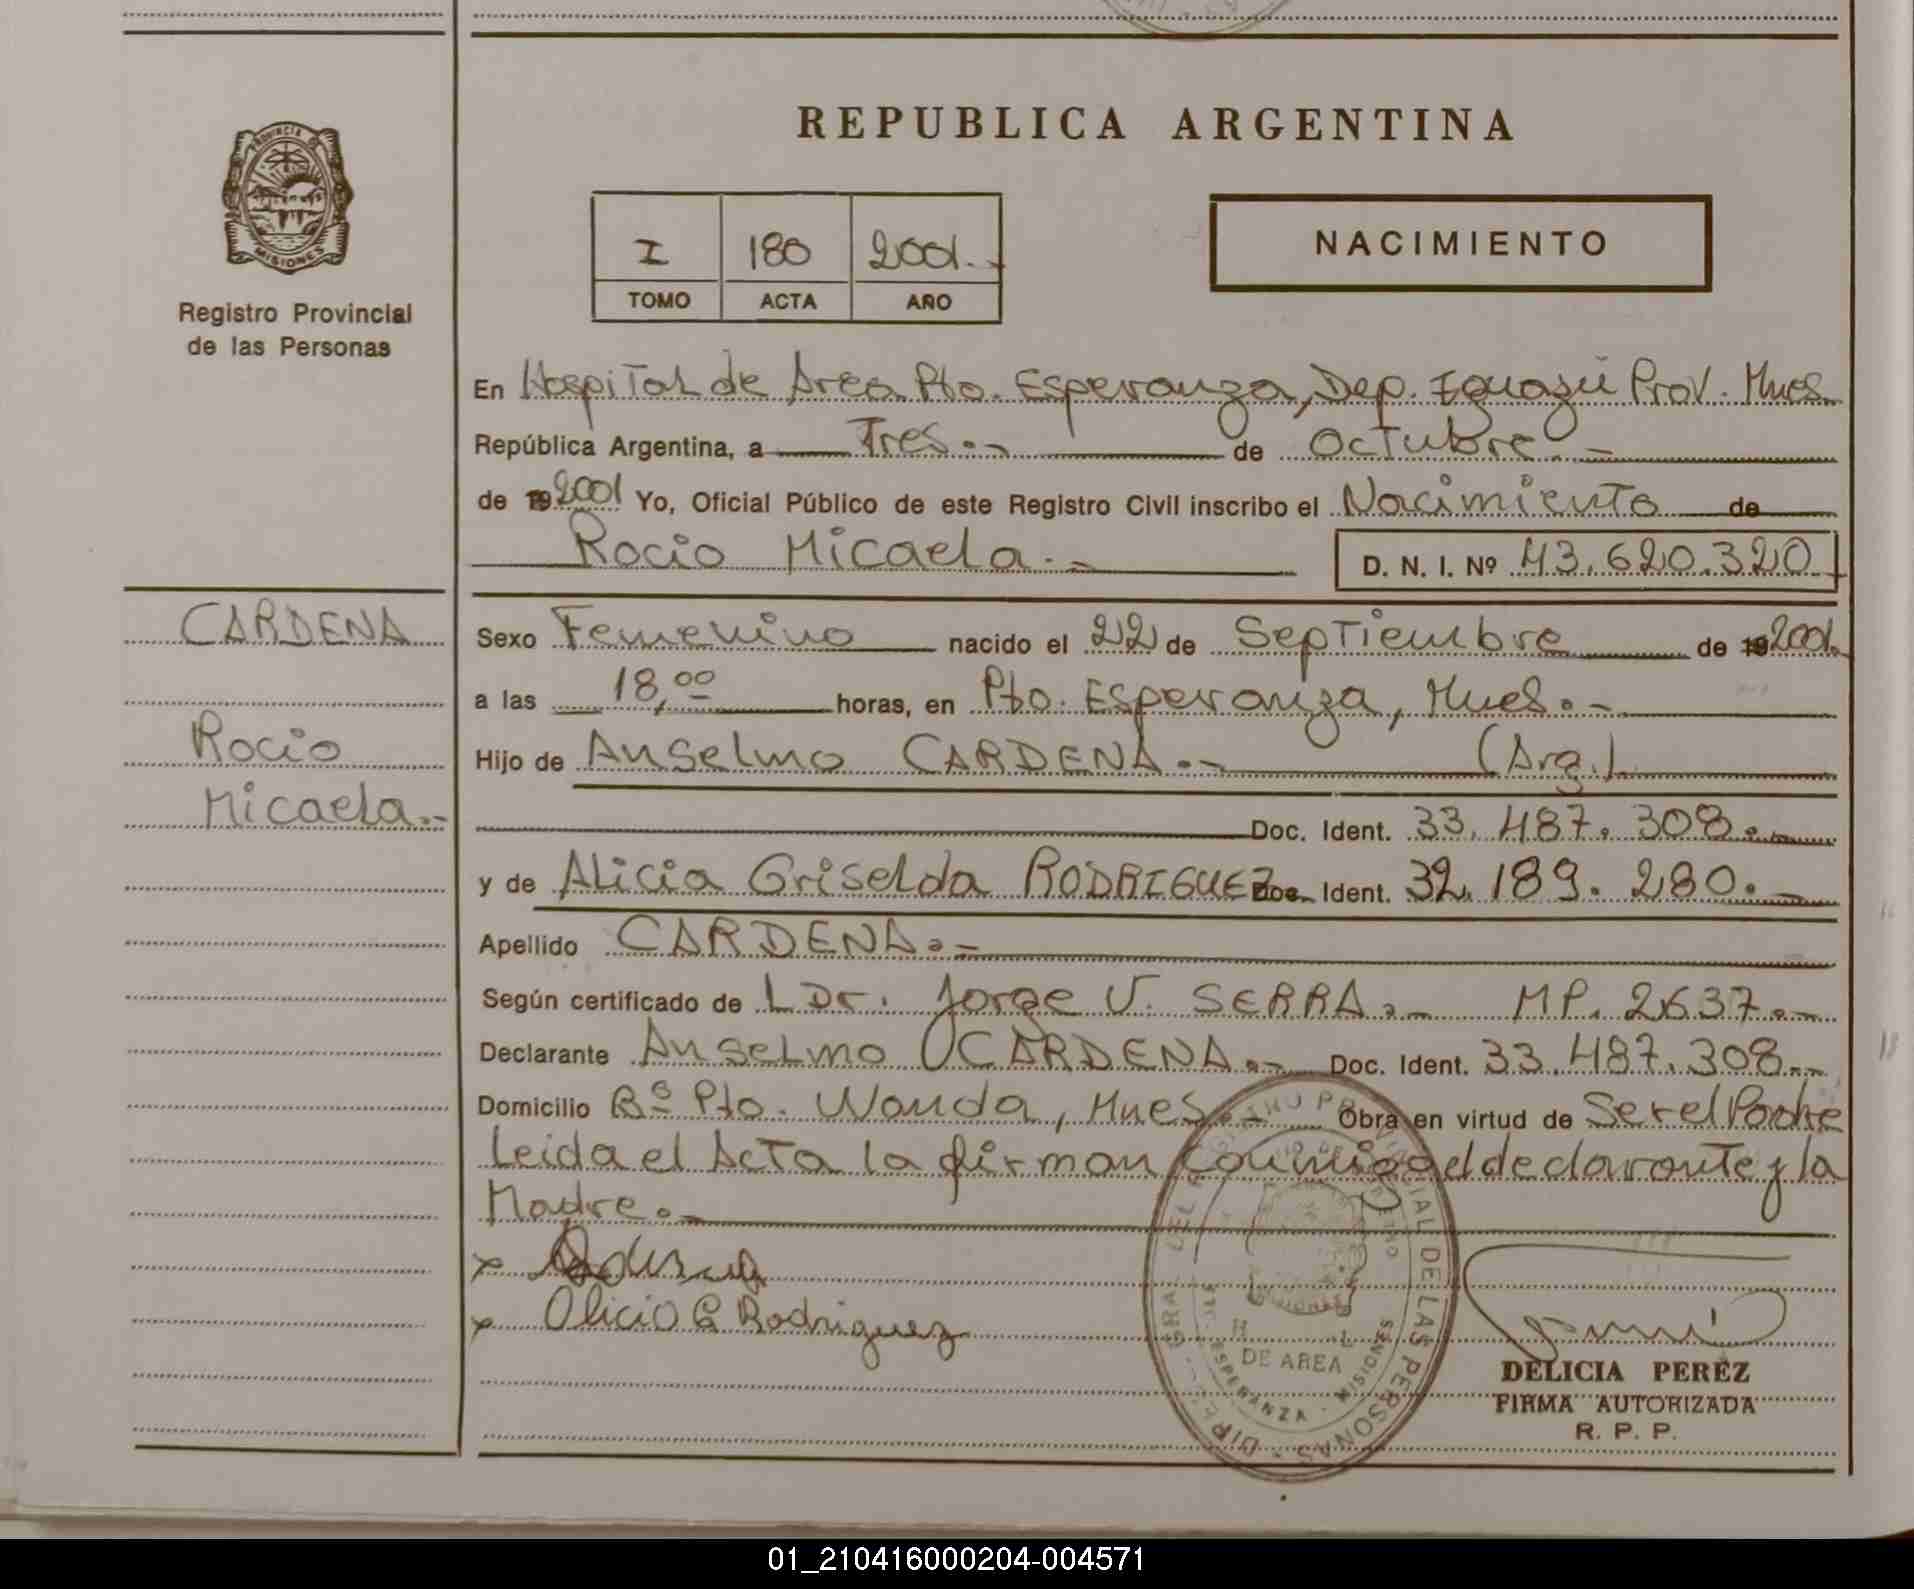 REPUBLICA ARGENTINA
PROVINCIA DE
MISIONES
Registro Provincial
de las Personas
I 180 2001.-
TOMO ACTA AÑO
NACIMIENTO
En Hospital de Area Pto. Esperanza, Dep. Iguazú Prov. Mnes.
República Argentina, a Tres.- de Octubre.-
de 192001 Yo, Oficial Público de este Registro Civil inscribo el Nacimiento de
Rocio Micaela.- D. N. I. Nº 43.620.320
CARDENA
Rocio
Micaela.-
Sexo Femenino nacido el 22 de Septiembre de 192001.
a las 18,00 horas, en Pto. Esperanza, Mnes.-
Hijo de Anselmo CARDENA.- (Arg.)
Doc. Ident. 33.487.308.-
y de Alicia Griselda RODRIGUEZ Doc. Ident. 32.189.280.-
Apellido CARDENA.-
Según certificado de L Dr. Jorge V. SERRA.- MP. 2637.-
Declarante Anselmo CARDENA.- Doc. Ident. 33.487.308.-
Domicilio Bº Pto. Wanda, Mnes.- Obra en virtud de Ser el Padre
Leida el Acta la firman conmigo el declarante y la
Madre.-
x
x Alicia G Rodriguez
DIR. GRAL. DEL REGISTRO PROVINCIAL DE LAS PERSONAS
DE AREA
ESPERANZA - MISIONES
DELICIA PEREZ
FIRMA AUTORIZADA
R. P. P.
01_210416000204-004571